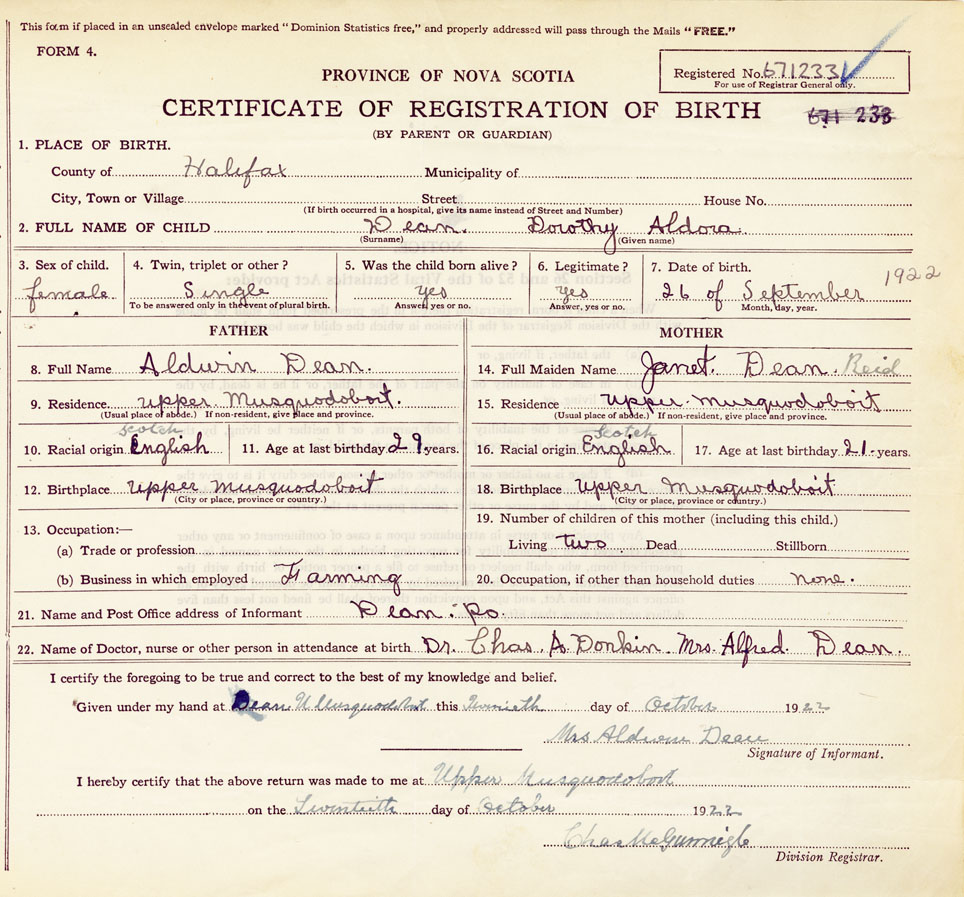 This form if placed in an unsealed envelope marked "Dominion Statistics free," and properly addressed will pass through the Mails "FREE."
FORM 4.
PROVINCE OF NOVA SCOTIA
Registered No. 671233
For use of Registrar General only.
CERTIFICATE OF REGISTRATION OF BIRTH
671 233
(BY PARENT OR GUARDIAN)
1. PLACE OF BIRTH.
County of Halifax Municipality of
City, Town or Village Street House No.
(If birth occurred in a hospital, give its name instead of Street and Number)
2. FULL NAME OF CHILD Dean. Dorothy Aldora
(Surname) (Given name)
3. Sex of child. 4. Twin, triplet or other? 5. Was the child born alive? 6. Legitimate? 7. Date of birth. 1922
female Single yes yes 26 of September
To be answered only in the event of plural birth. Answer, yes or no. Answer, yes or no. Month, day, year.
FATHER MOTHER
8. Full Name Aldwin Dean. 14. Full Maiden Name Janet. Dean. Reid
9. Residence Upper Musquodoboit. 15. Residence Upper Musquodoboit
(Usual place of abode.) If non-resident, give place and province. (Usual place of abode.) If non-resident, give place and province.
scotch scotch
10. Racial origin English 11. Age at last birthday 29 years. 16. Racial origin English 17. Age at last birthday 21 years.
12. Birthplace Upper Musquodoboit 18. Birthplace Upper Musquodoboit
(City or place, province or country.) (City or place, province or country.)
13. Occupation:— 19. Number of children of this mother (including this child.)
(a) Trade or profession Living two Dead Stillborn
(b) Business in which employed Farming 20. Occupation, if other than household duties none.
21. Name and Post Office address of Informant Dean. Po.
22. Name of Doctor, nurse or other person in attendance at birth Dr. Chas. A. Donkin. Mrs. Alfred. Dean.
I certify the foregoing to be true and correct to the best of my knowledge and belief.
Given under my hand at Dean U Musquodoboit this Twentieth day of October 1922
Mrs Aldwin Dean
Signature of Informant.
I hereby certify that the above return was made to me at Upper Musquodoboit
on the Twentieth day of October 1922
Chas McGunnigle
Division Registrar.